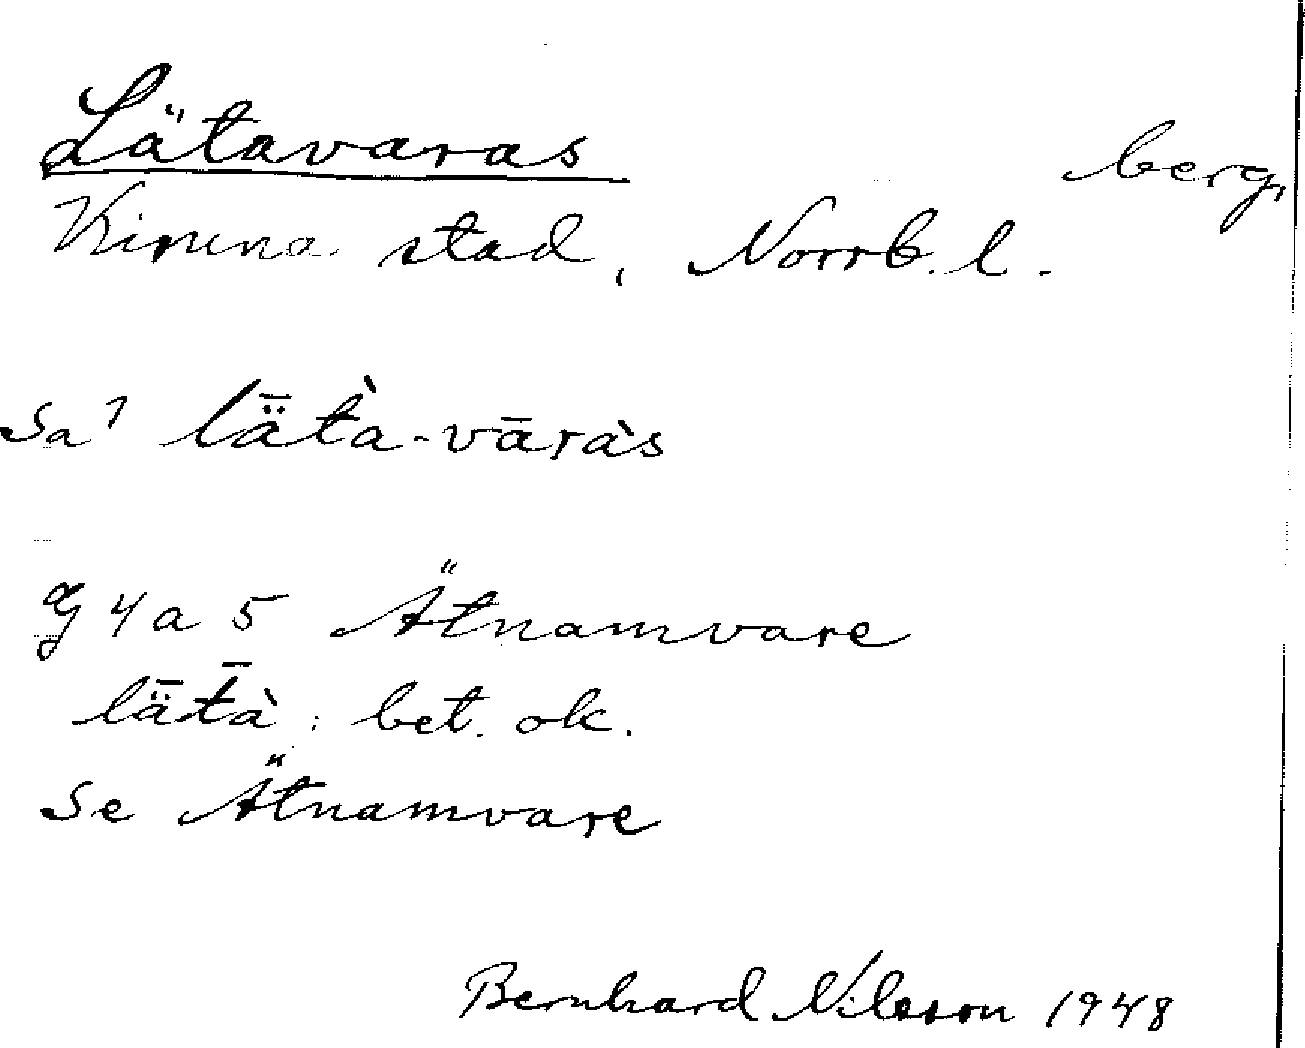 Lätavaras berg,
Kiruna stad, Norrb. l.
Sa 1 lǟtà-vāràs
G 4 a 5 Ätnamvare
lǟt̄à: bet. ok.
Se Ätnamvare
Bernhard Nilsson 1948